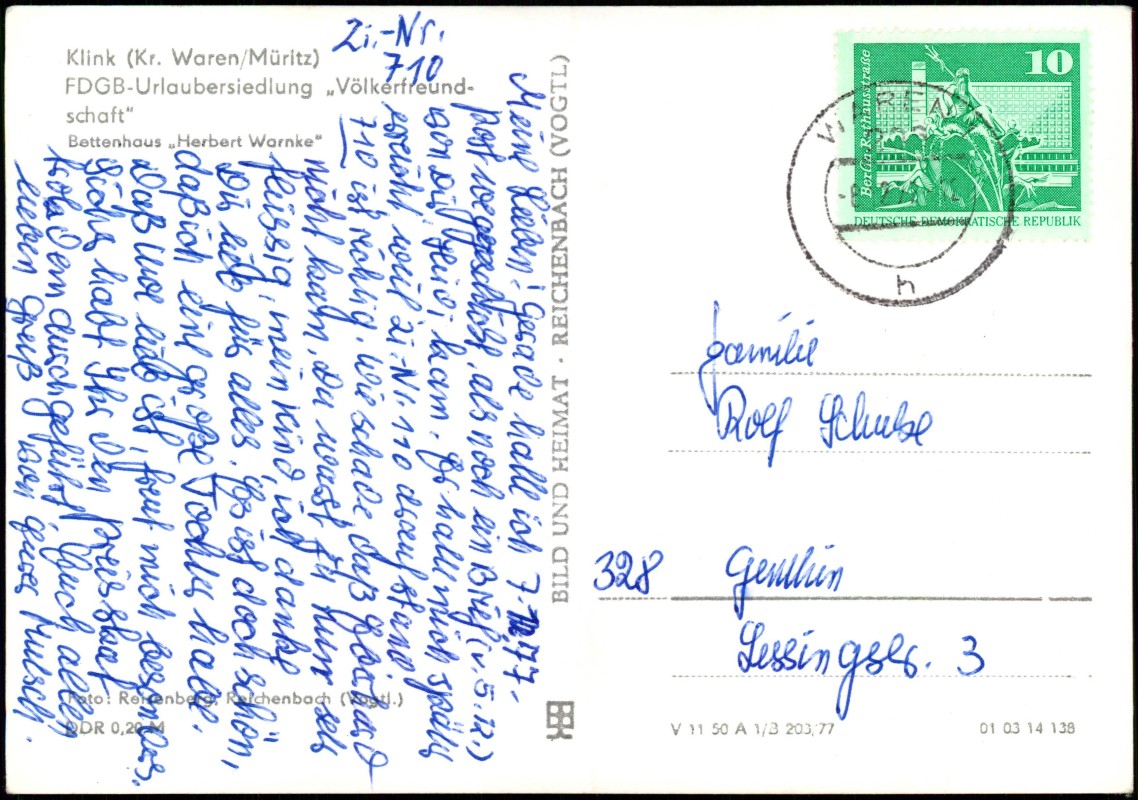 Zi.-Nr.
710
Klink (Kr. Waren/Müritz)
FDGB-Urlaubersiedlung „Völkerfreund-
schaft“
Bettenhaus „Herbert Warnke“
Meine Lieben! Gerade hatte ich 7.12.77.
Post, als noch ein Brief (v. 5.12.)
von Dir, Heidi, kam. Er hatte mich später
erreicht weil Zi.-Nr. 110 drauf stand
710 ist richtig. Wie schade, daß
nicht kam. Du warst ja nun sehr
fleissig, mein Kind, ich danke
Dir lieb für alles. Es ist doch schön,
daß ich eine große Tochter habe.
Daß Uwe lieb ist, freut mich besonders.
Sicher habt Ihr den
froh dem durchgeführt. Euch allen
einen lieben Gruß von Eurer Mutsch.
Foto: Reisenberg, Reichenbach (Vogtl.)
DDR 0,20 M
BILD UND HEIMAT · REICHENBACH (VOGTL)
10
Berlin-Rathausstraße
DEUTSCHE DEMOKRATISCHE REPUBLIK
WAREN
h
Familie
Rolf Schulze
328 Genthin
Lessingstr. 3
V 11 50 A 1/B 203/77
01 03 14 138